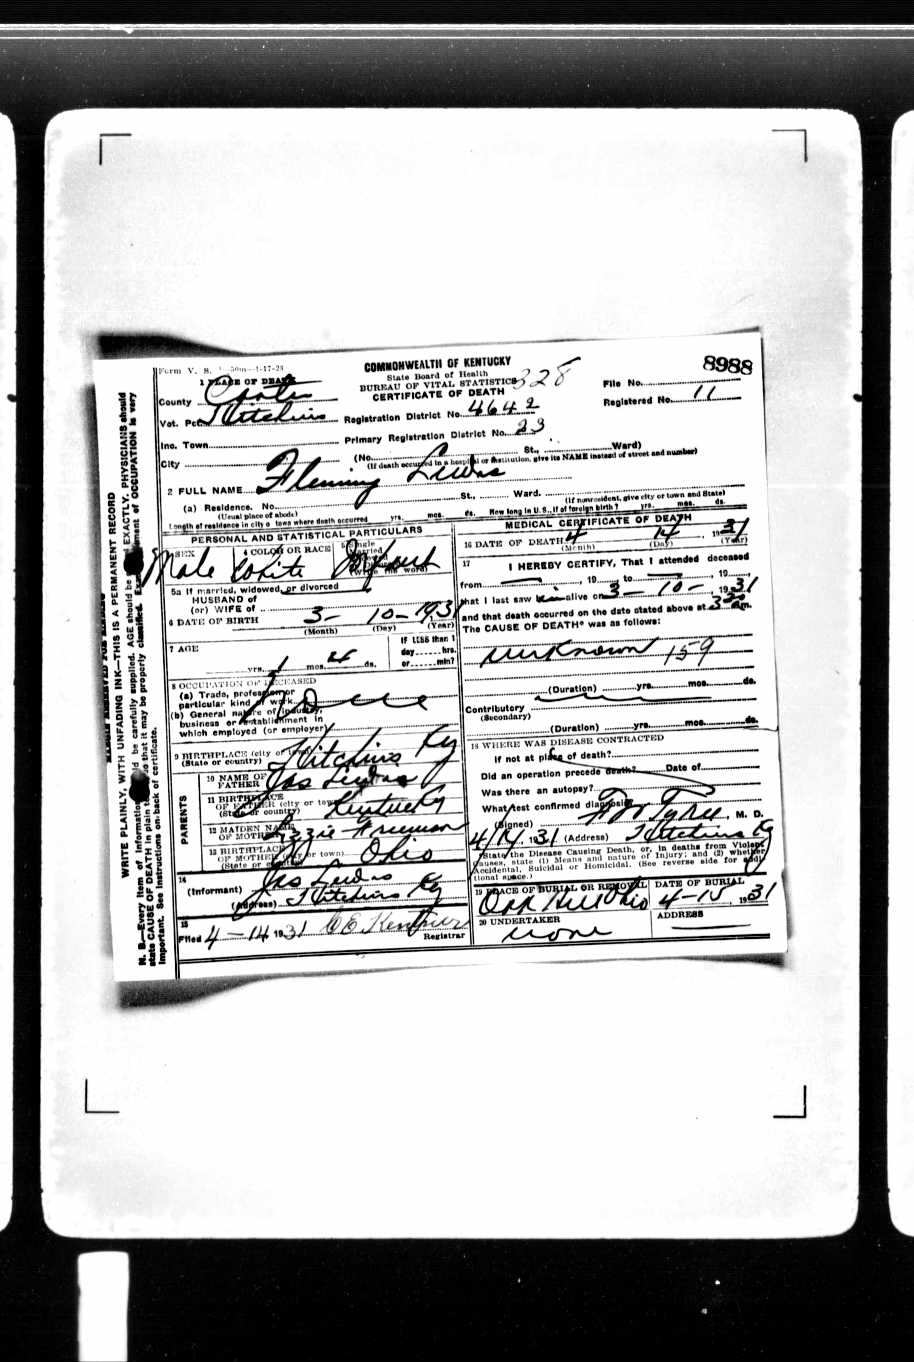 Form V. S. 1-50m-1-17-29
COMMONWEALTH OF KENTUCKY
State Board of Health
BUREAU OF VITAL STATISTICS
CERTIFICATE OF DEATH
328
8988
File No.
Registered No. 11
1 PLACE OF DEATH
County Carter
Vot. Pct. Hitchins
Registration District No. 4642
Inc. Town
Primary Registration District No. 23
City (No. St., Ward)
(If death occurred in a hospital or institution, give its NAME instead of street and number)
2 FULL NAME Fleming Lewis
(a) Residence. No. St., Ward.
(Usual place of abode) (If nonresident, give city or town and State)
Length of residence in city or town where death occurred yrs. mos. ds. How long in U. S., if of foreign birth? yrs. mos. ds.
PERSONAL AND STATISTICAL PARTICULARS
3 SEX Male
4 COLOR OR RACE White
5 Single
Married
(Write the word) Infant
5a If married, widowed, or divorced
HUSBAND of
(or) WIFE of
6 DATE OF BIRTH 3- 10- 1931
(Month) (Day) (Year)
7 AGE
If LESS than 1
day hrs.
or min?
yrs. 1 mos. 4 ds.
8 OCCUPATION OF DECEASED
(a) Trade, profession or
particular kind of work
(b) General nature of industry,
business or establishment in
which employed (or employer)
None
9 BIRTHPLACE (city or town)
(State or country) Hitchins Ky
PARENTS
10 NAME OF
FATHER Jas Lewis
11 BIRTHPLACE
OF FATHER (city or town)
(State or country) Kentucky
12 MAIDEN NAME
OF MOTHER Lizzie Freeman
13 BIRTHPLACE
OF MOTHER (city or town)
(State or country) Ohio
14
(Informant) Jas Lewis
(Address) Hitchins Ky
15
Filed 4-14 1931
Registrar
MEDICAL CERTIFICATE OF DEATH
16 DATE OF DEATH 4 14, 1931
(Month) (Day) (Year)
17 I HEREBY CERTIFY, That I attended deceased
from , 19 to , 19
that I last saw him alive on 3-10-, 1931
and that death occurred on the date stated above at 3 m.
The CAUSE OF DEATH* was as follows:
unknown 159
(Duration) yrs. mos. ds.
Contributory
(Secondary)
(Duration) yrs. mos. ds.
18 WHERE WAS DISEASE CONTRACTED
If not at place of death?
Did an operation precede death? Date of
Was there an autopsy?
What test confirmed diagnosis?
(Signed) Tyree, M. D.
4/14, 1931 (Address) Hitchins Ky
*State the Disease Causing Death, or, in deaths from Violent
Causes, state (1) Means and nature of Injury; and (2) whether
Accidental, Suicidal or Homicidal. (See reverse side for addi-
tional space.)
19 PLACE OF BURIAL OR REMOVAL Oak Hill Ohio
DATE OF BURIAL 4-15, 1931
20 UNDERTAKER none
ADDRESS
MARGIN RESERVED FOR BINDING
WRITE PLAINLY, WITH UNFADING INK—THIS IS A PERMANENT RECORD
N. B.—Every item of information should be carefully supplied. AGE should be EXACTLY. PHYSICIANS should
state CAUSE OF DEATH in plain so that it may be properly classified. Exact statement of OCCUPATION is very
important. See instructions on back of certificate.